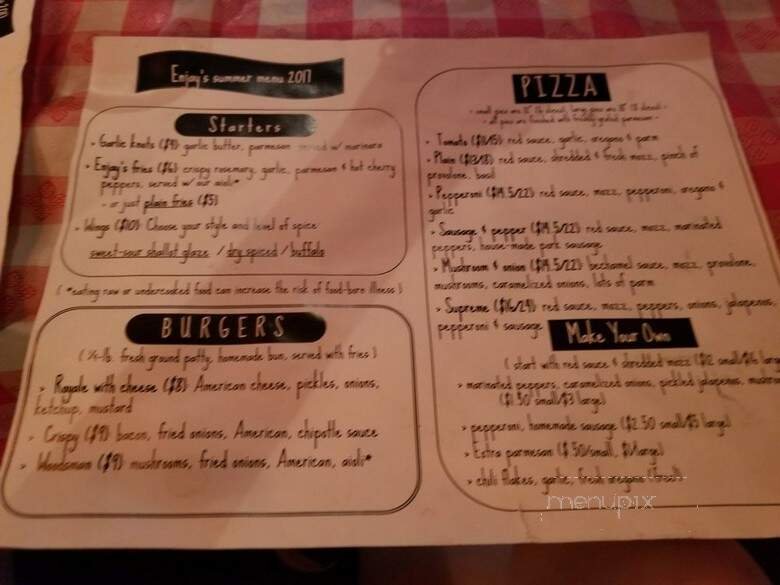 Enjay's summer menu 2017
Starters
> Garlic knots ($4) garlic butter, parmesan served w/ marinara
> Enjay's fries ($6) crispy rosemary, garlic, parmesan & hot cherry
peppers, served w/ our aioli*
- or just plain fries ($5)
> Wings ($10) Choose your style and level of spice
sweet-sour shallot glaze / dry spiced / buffalo
( *eating raw or undercooked food can increase the risk of food-born illness )
BURGERS
( ¼-lb. fresh ground patty, homemade bun, served with fries )
> Royale with cheese ($8) American cheese, pickles, onions,
ketchup, mustard
> Crispy ($9) bacon, fried onions, American, chipotle sauce
> Woodsman ($9) mushrooms, fried onions, American, aioli*
PIZZA
- small pies are 12" (6 slices), large pies are 18" (8 slices) -
- all pies are finished with freshly grated parmesan -
> Tomato ($11/15) red sauce, garlic, oregano & parm
> Plain ($13/18) red sauce, shredded & fresh mozz, pinch of
provolone, basil
> Pepperoni ($14.5/22) red sauce, mozz, pepperoni, oregano &
garlic
> Sausage & pepper ($14.5/22) red sauce, mozz, marinated
peppers, house-made pork sausage
> Mushroom & onion ($14.5/22) bechamel sauce, mozz, provolone,
mushrooms, caramelized onions, lots of parm
> Supreme ($16/24) red sauce, mozz, peppers, onions, jalapenos,
pepperoni & sausage
Make Your Own
( start with red sauce & shredded mozz ($12 small/$16 large
> marinated peppers, caramelized onions, pickled jalapenos,
($1.50 small/$3 large)
> pepperoni, homemade sausage ($2.50 small/$5 large)
> Extra parmesan ($.50/small, $1/large)
> chili flakes, garlic, fresh oregano (free!)
menupix